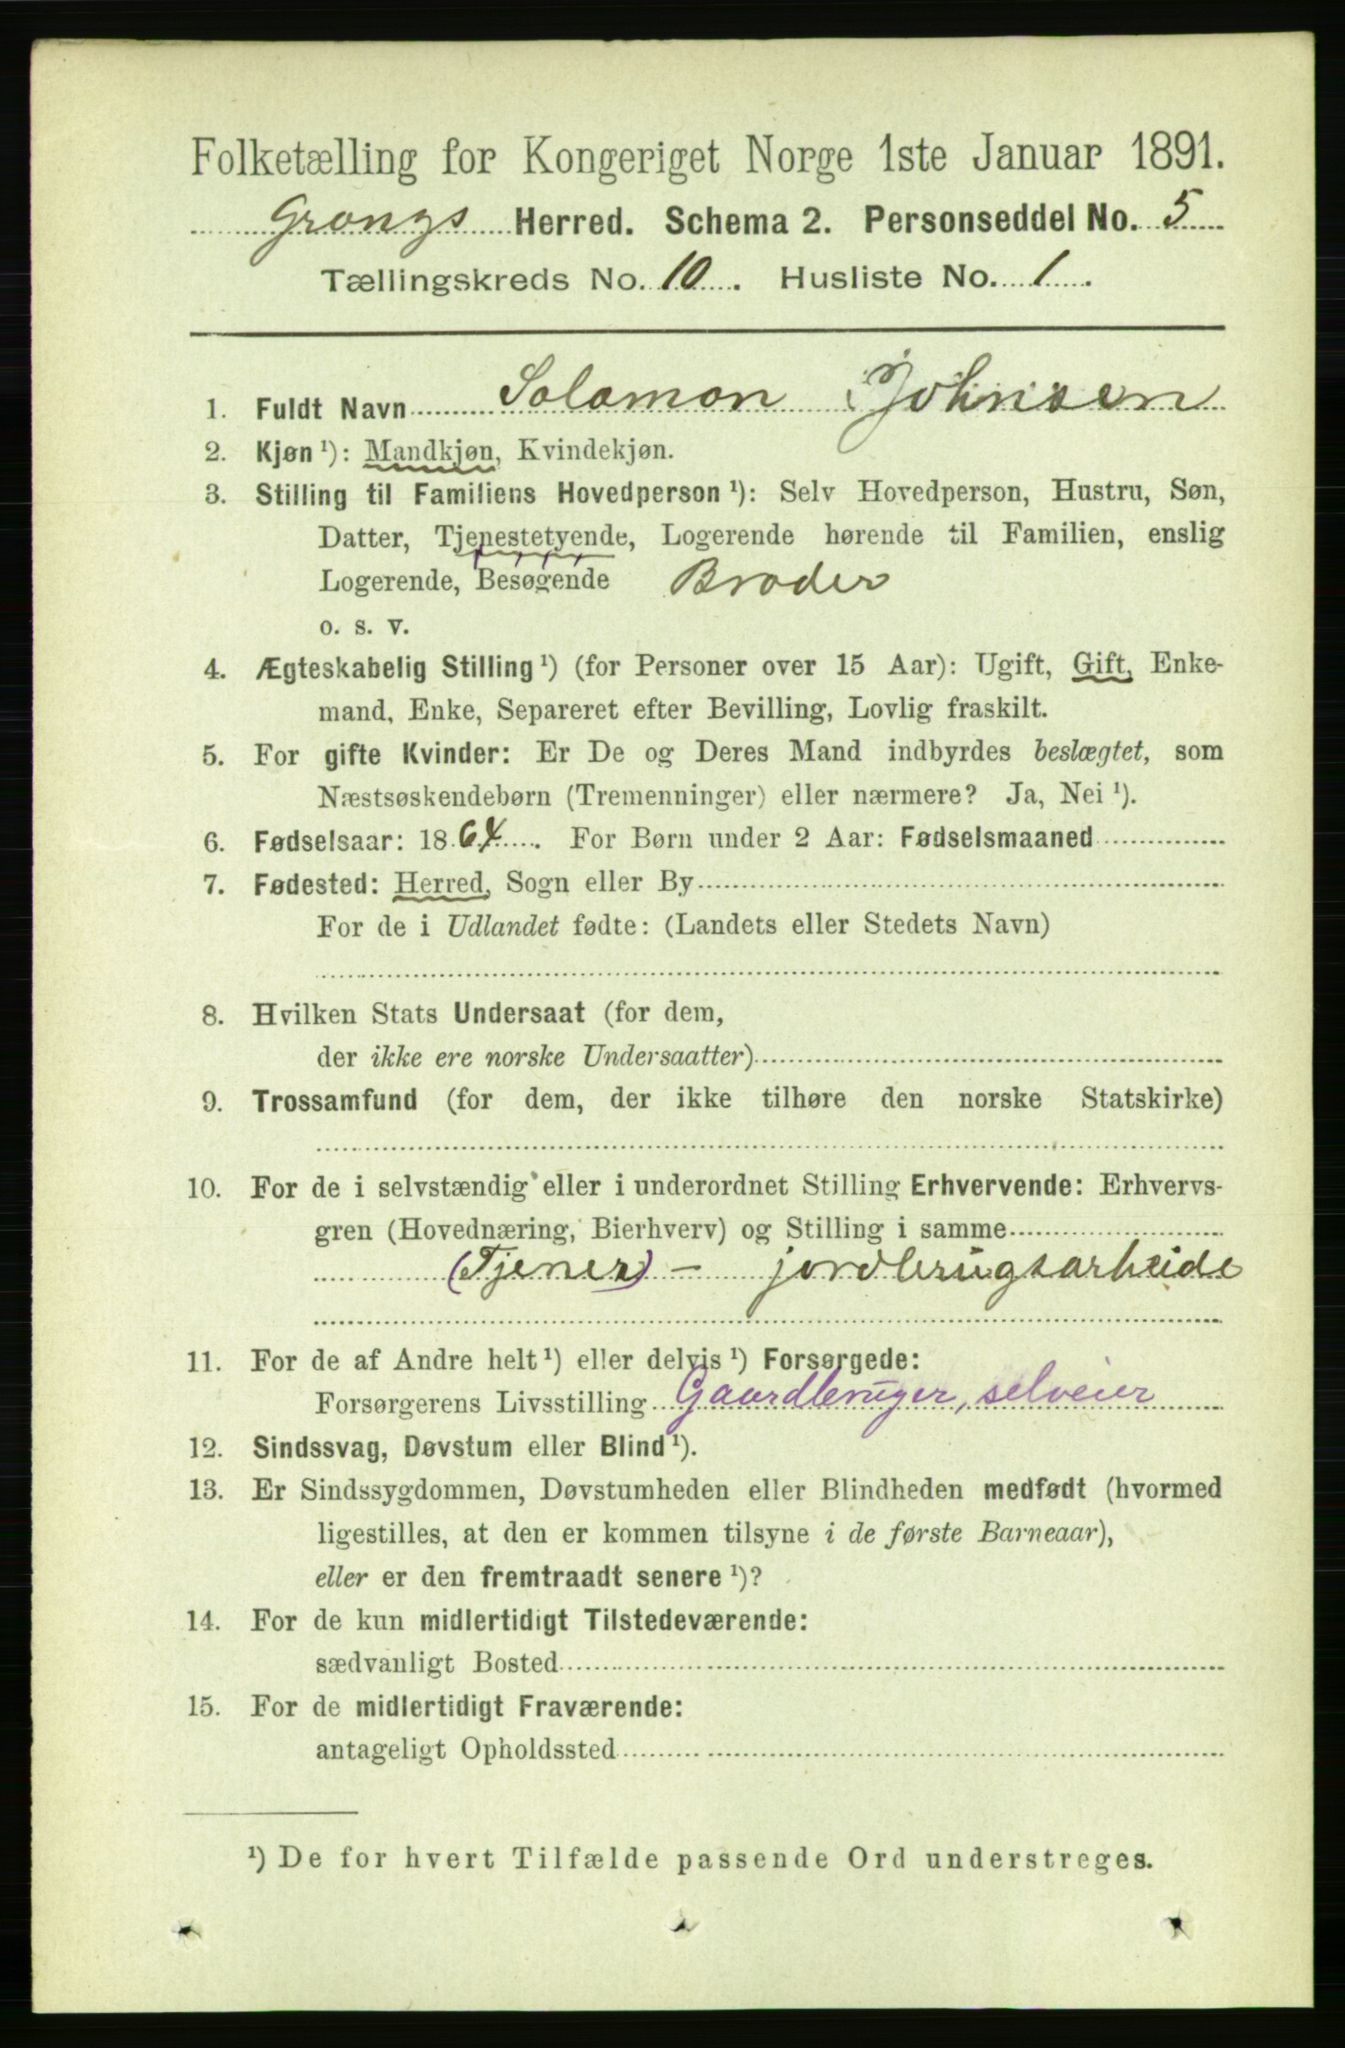 Folketælling for Kongeriget Norge 1ste Januar 1891.
Grongs Herred. Schema 2. Personseddel No. 5
Tællingskreds No. 10. Husliste No. 1.
1. Fuldt Navn Salamon Johnsen
2. Kjøn ¹): Mandkjøn, Kvindekjøn.
3. Stilling til Familiens Hovedperson ¹): Selv Hovedperson, Hustru, Søn,
Datter, Tjenestetyende, Logerende hørende til Familien, enslig
Logerende, Besøgende Broder
o. s. v.
4. Ægteskabelig Stilling ¹) (for Personer over 15 Aar): Ugift, Gift, Enke-
mand, Enke, Separeret efter Bevilling, Lovlig fraskilt.
5. For gifte Kvinder: Er De og Deres Mand indbyrdes beslægtet, som
Næstsøskendebørn (Tremenninger) eller nærmere? Ja, Nei ¹).
6. Fødselsaar: 1864. For Børn under 2 Aar: Fødselsmaaned
7. Fødested: Herred, Sogn eller By
For de i Udlandet fødte: (Landets eller Stedets Navn)
8. Hvilken Stats Undersaat (for dem,
der ikke ere norske Undersaatter)
9. Trossamfund (for dem, der ikke tilhøre den norske Statskirke)
10. For de i selvstændig eller i underordnet Stilling Erhvervende: Erhvervs-
gren (Hovednæring, Bierhverv) og Stilling i samme
(Tjener) - jordbrugsarbeide
11. For de af Andre helt ¹) eller delvis ¹) Forsørgede:
Forsørgerens Livsstilling Gaardbruger, selveier
12. Sindssvag, Døvstum eller Blind ¹).
13. Er Sindssygdommen, Døvstumheden eller Blindheden medfødt (hvormed
ligestilles, at den er kommen tilsyne i de første Barneaar),
eller er den fremtraadt senere ¹)?
14. For de kun midlertidigt Tilstedeværende:
sædvanligt Bosted
15. For de midlertidigt Fraværende:
antageligt Opholdssted
¹) De for hvert Tilfælde passende Ord understreges.